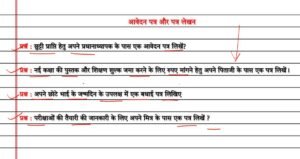 आवेदन पत्र और पत्र लेखन
प्रश्न : छुट्टी प्राप्ति हेतु अपने प्रधानाध्यापक के पास एक आवेदन पत्र लिखें?
प्रश्न : नई कक्षा की पुस्तक और शिक्षण शुल्क जमा करने के लिए रुपए मांगने हेतु अपने पिताजी के पास एक पत्र लिखें।
प्रश्न : अपने छोटे भाई के जन्मदिन के उपलक्ष में एक बधाई पत्र लिखिए
प्रश्न : परीक्षाओं की तैयारी की जानकारी के लिए अपने मित्र के पास एक पत्र लिखें ?